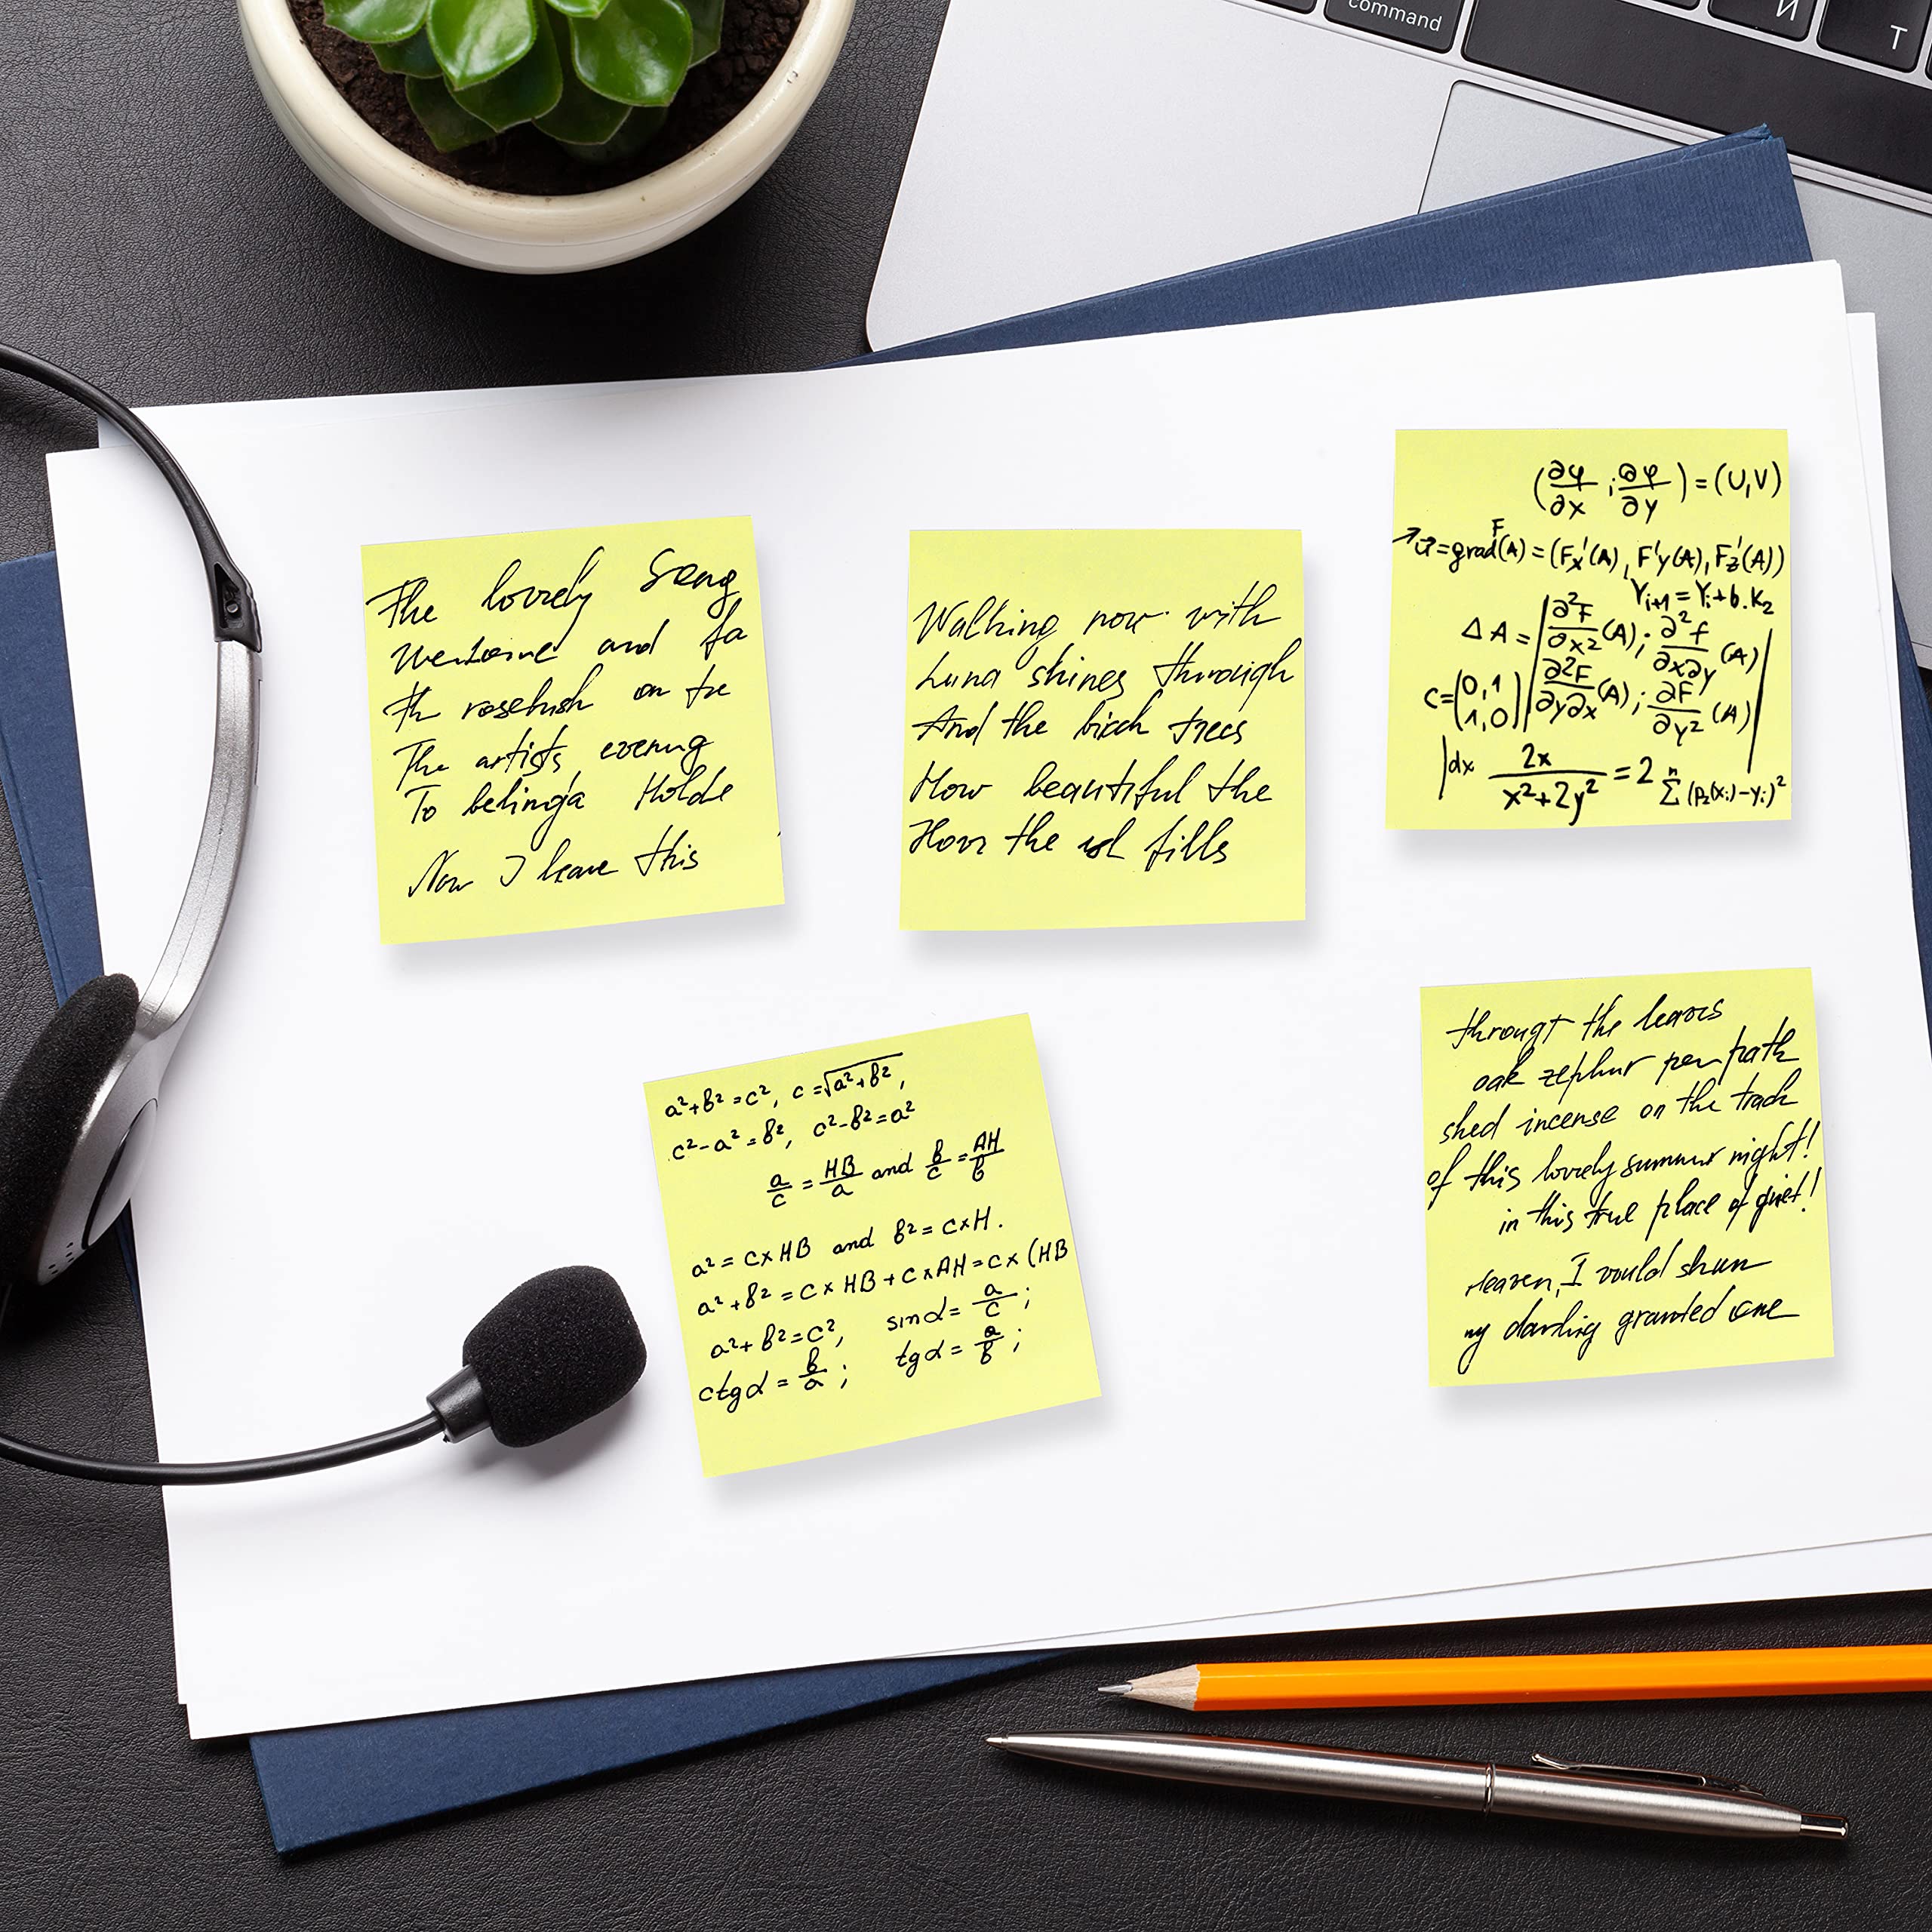 command
И
Т
The lovely Song
Welcome and fa
th rosebush on the
The artists evening
To belinga Holde
Now I leave this
Walking now with
Luna shines through
And the birch trees
How beautiful the
How the fills
(∂φ/∂x ; ∂φ/∂y) = (U,V)
u⃗ = grad F(A) = (Fx'(A), F'y(A), Fz'(A))
Yi+1 = Yi + b.K2
ΔA = |∂²F/∂x²(A); ∂²f/∂x∂y(A)
C = (0,1 1,0) ∂²F/∂y∂x(A); ∂F/∂y²(A)|
|dx 2x/(x²+2y²) = 2 Σⁿ(p2(xi)-yi)²
a²+b²=c², c=√(a²+b²),
c²-a²=b², c²-b²=a²
a/c = HB/a and b/c = AH/b
a² = c×HB and b² = c×H.
a²+b² = c×HB+c×AH=c×(HB
a²+b²=c², sinα = a/c;
ctgα = b/a; tgα = a/b;
througt the leaves
oak zephur path
shed incense on the track
of this lovely summer night!
in this true place of quiet!
Heaven, I would shun
my darling granted one